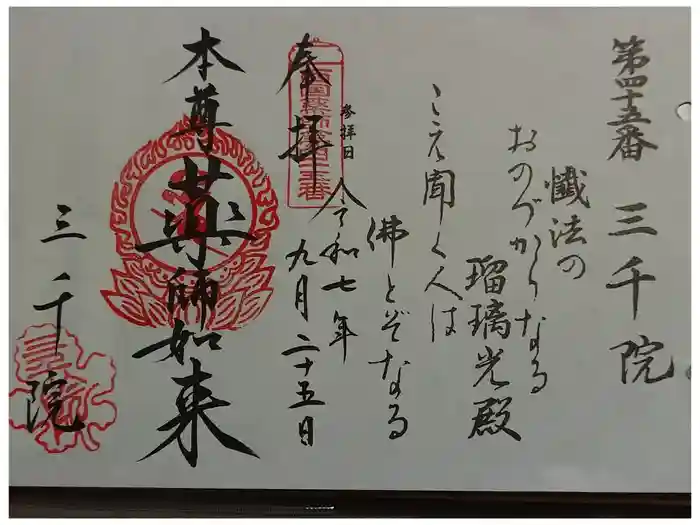 第四十五番 三千院
懺法の
おのづからなる
瑠璃光殿
こえ聞く人は
佛とぞなる
参拝日 令和七年
九月二十五日
奉拝
西国薬師第四十五番
本尊 薬師如来
三千院